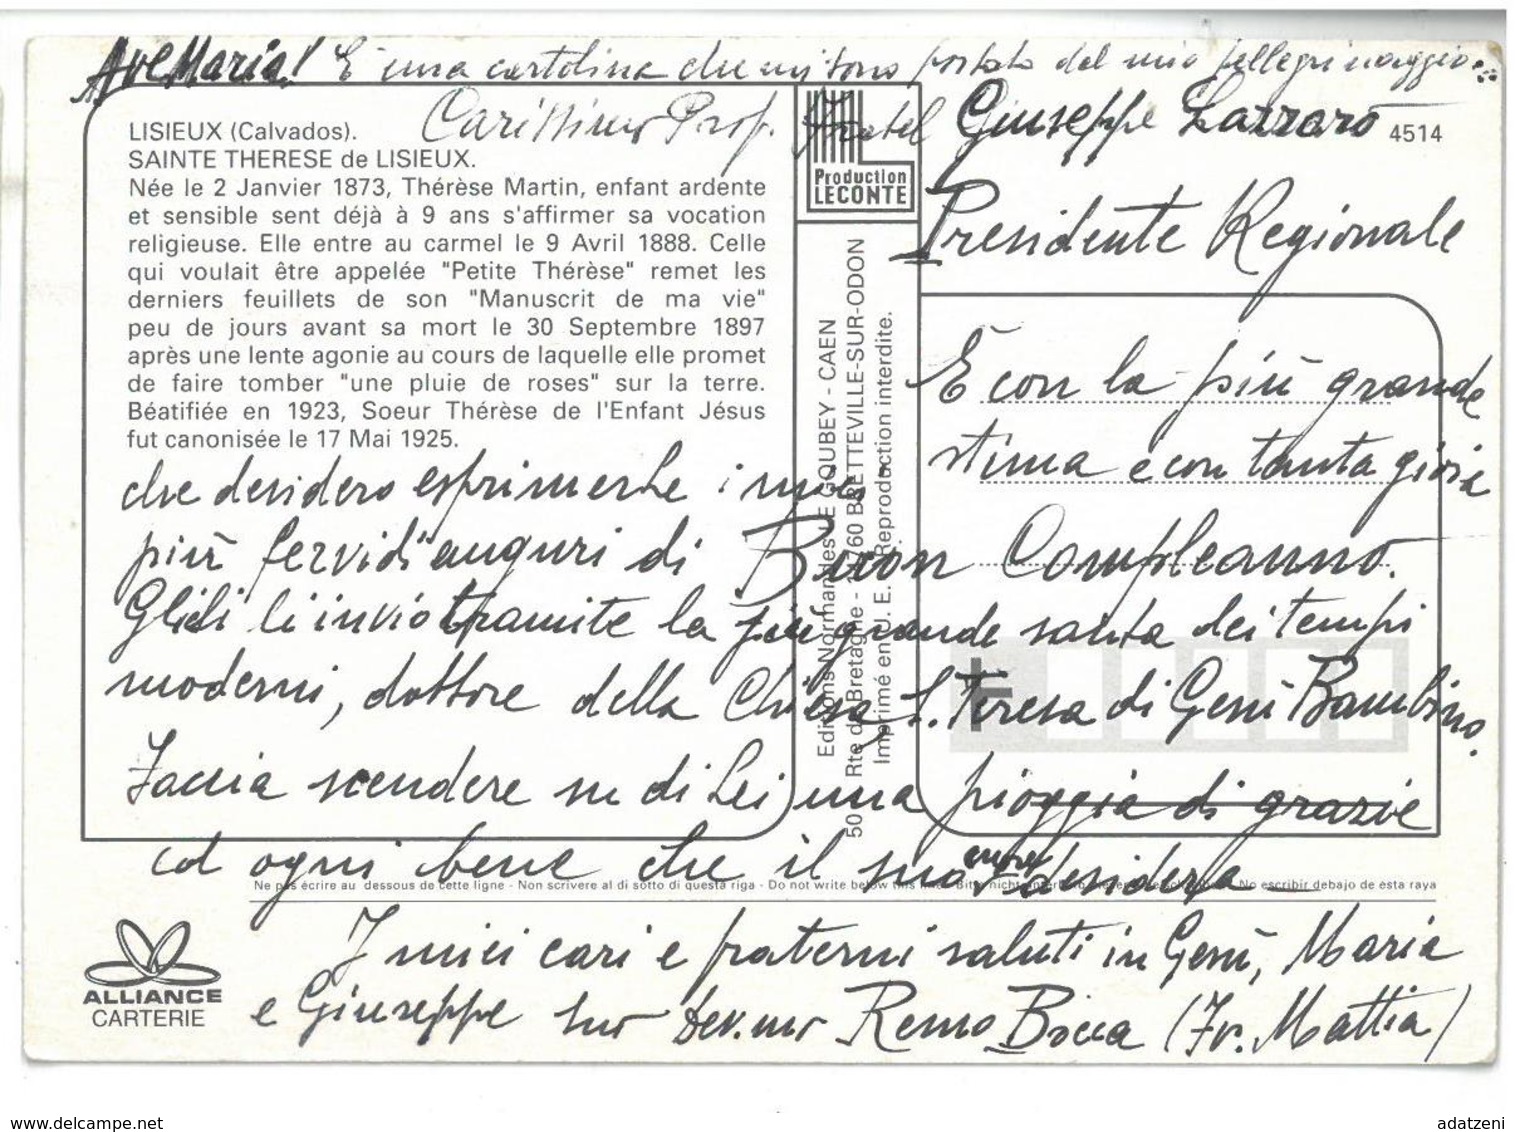 Ave Maria! È una cartolina che mi sono portato dal mio pellegrinaggio.
Carissimo Prof. Fratel Giuseppe Lazzaro
Presidente Regionale
4514
LISIEUX (Calvados).
SAINTE THERESE de LISIEUX.
Née le 2 Janvier 1873, Thérèse Martin, enfant ardente
et sensible sent déjà à 9 ans s'affirmer sa vocation
religieuse. Elle entre au carmel le 9 Avril 1888. Celle
qui voulait être appelée "Petite Thérèse" remet les
derniers feuillets de son "Manuscrit de ma vie"
peu de jours avant sa mort le 30 Septembre 1897
après une lente agonie au cours de laquelle elle promet
de faire tomber "une pluie de roses" sur la terre.
Béatifiée en 1923, Soeur Thérèse de l'Enfant Jésus
fut canonisée le 17 Mai 1925.
Production
LECONTE
Editions Normandes LE GOUBEY - CAEN
50 Rte de Bretagne - 14760 BRETTEVILLE-SUR-ODON
Imprimé en U. E. Reproduction interdite.
È con la più grande
stima e con tanta gioia
che desidero esprimerLe i miei
più fervidi auguri di Buon Compleanno.
Glieli invio tramite la più grande santa dei tempi
moderni, dottore della Chiesa, S. Teresa di Gesù Bambino.
Faccia scendere su di Lei una pioggia di grazie
ed ogni bene che il suo cuore desidera
Ne pas écrire au dessous de cette ligne - Non scrivere al di sotto di questa riga - Do not write below this line - Bitte nicht unterhalb No escribir debajo de esta raya
I miei cari e fraterni saluti in Gesù, Maria
e Giuseppe suo dev.mo Remo Bocca (Fr. Mattia)
ALLIANCE
CARTERIE
www.delcampe.net
adatzeni